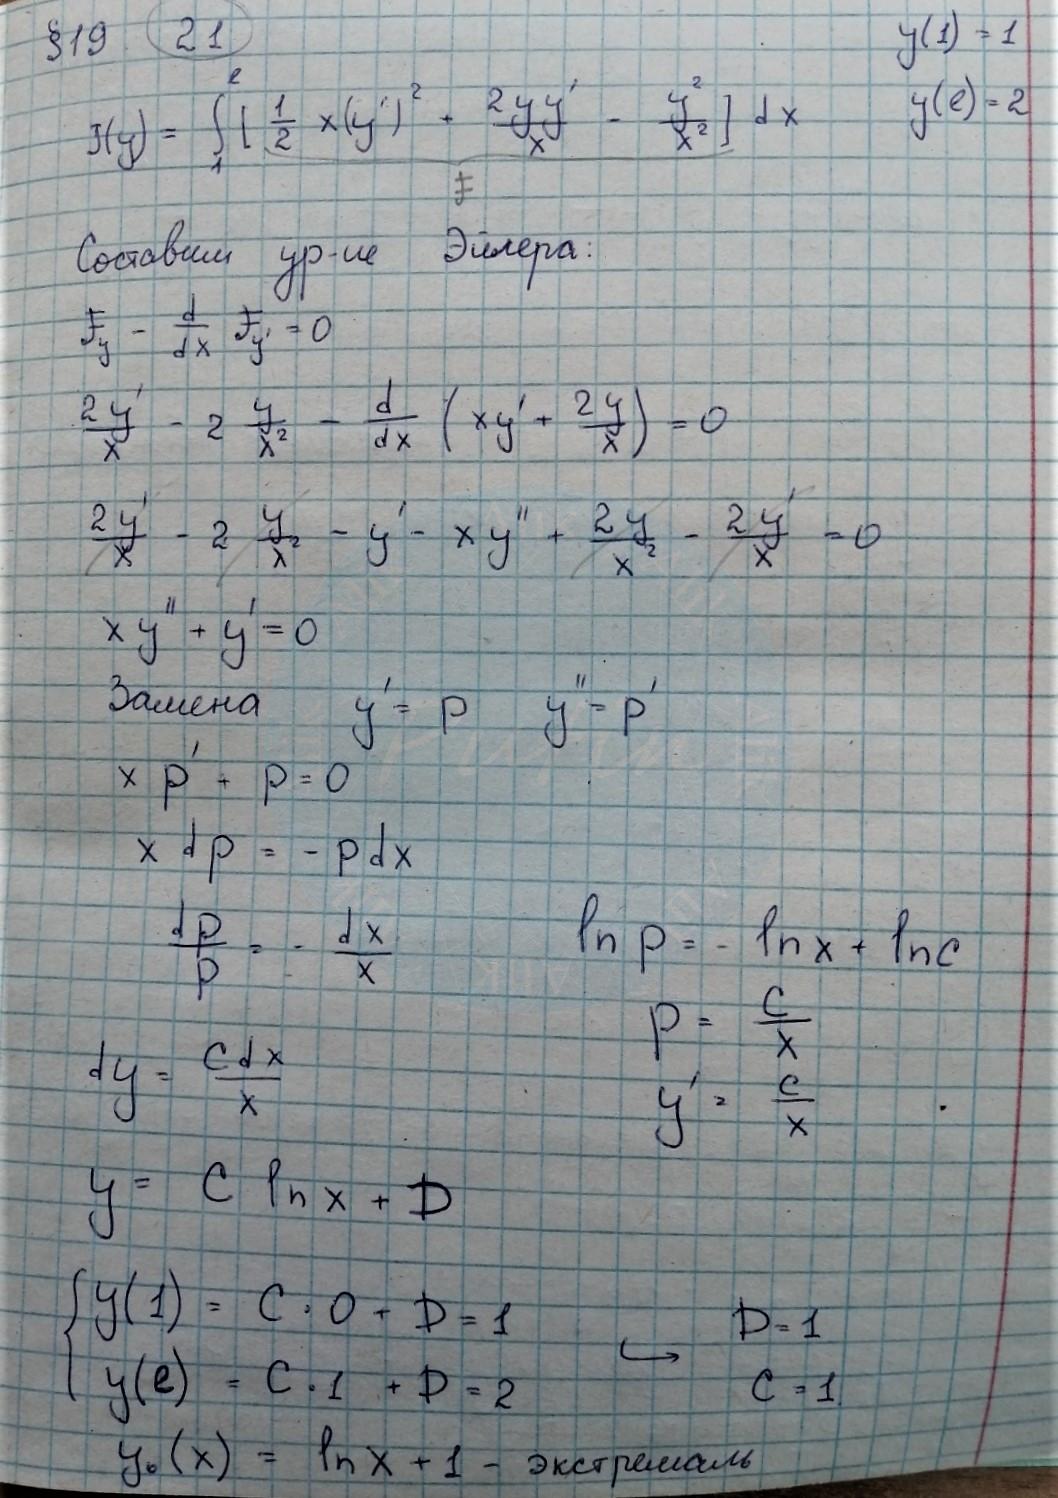 §19 21 y(1) = 1
J(y) = ∫₁ᵉ [ 1/2 x(y')² + 2yy'/x - y²/x² ] dx y(e) = 2
F
Составим ур-ие Эйлера:
F_y - d/dx F_y' = 0
2y'/x - 2 y/x² - d/dx ( xy' + 2y/x ) = 0
2y'/x - 2 y/x² - y' - xy'' + 2y/x² - 2y'/x = 0
xy'' + y' = 0
Замена y' = p y'' = p'
x p' + p = 0
x dp = - p dx
dp/p = - dx/x ln p = - ln x + ln c
p = c/x
dy = c dx/x y' = c/x
y = C ln x + D
{ y(1) = C · 0 + D = 1 D = 1
y(e) = C · 1 + D = 2 ↪ C = 1
y₀(x) = ln x + 1 - экстремаль